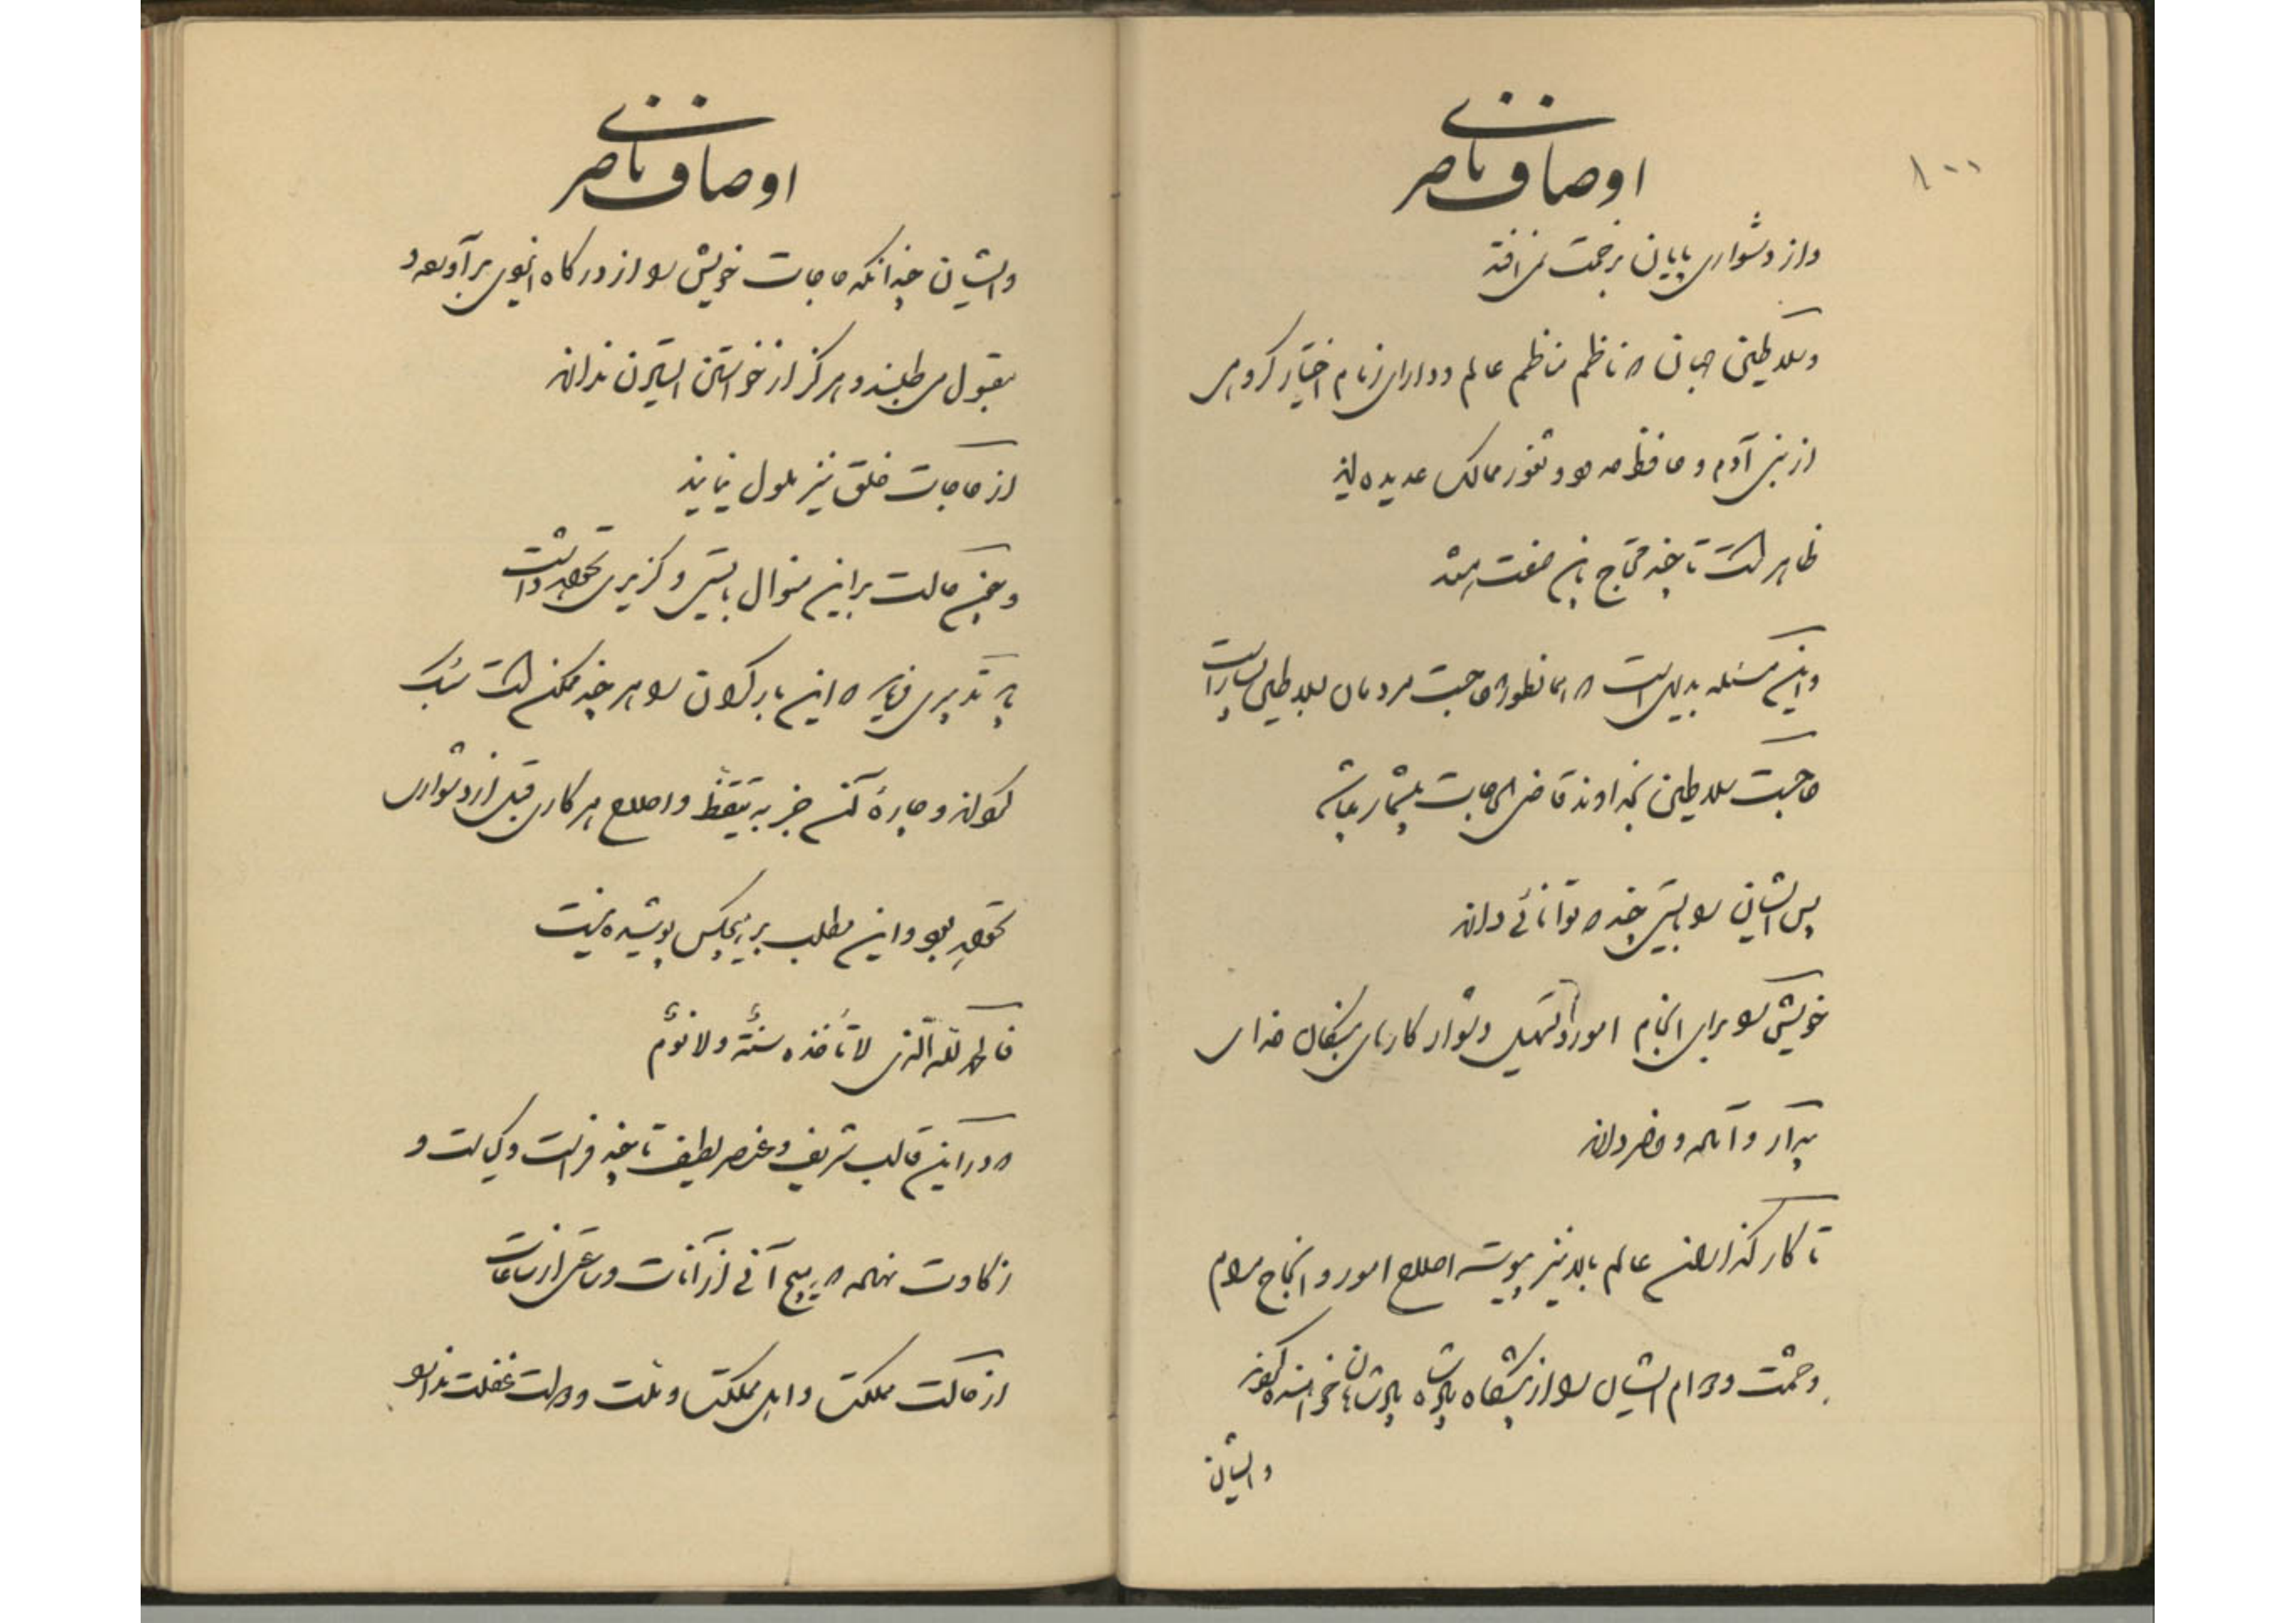 ۱۰۰
اوصاف ناصری
و از دشواری پایان بزحمت نمی افتد
و سلاطین جهان که ناظم مناظم عالم و دارای زمام اختیار گروهی
از بنی آدم و حافظ حدود و ثغور ممالک عدیده اند
ظاهر است تا چند محتاج باین صفت هستند
و این مسئله بدیهی است که همانطور که حاجت مردمان بسلاطین بسیار است
حاجت سلاطین بخداوند قاضی الحاجات بیشمار میباشد
پس ایشان را بایستی چند که توانائی دارند
خویش را برای انجام امور و تسهیل دشوار کارهای بندگان خدای
بیدار و آماده و حاضر دارند
تا کارگذاران عالم بالا نیز پیوسته اصلاح امور و انجاح مرام
و حشمت و دوام ایشان را از پیشگاه پادشاه پادشاهان خواستار گردند
و ایشان
اوصاف ناصری
و ایشان چندانکه حاجات خویش را از درگاه ایزدی برآورده و
مقبول می طلبند و هرگز از خواستن استیزن ندارند
از حاجات خلق نیز ملول نمانند
و چون حالت بر این منوال بایستی و گزیری نخواهد داشت
به تدبیری فرمایند که این بار گران را هر چند ممکن است سبک
گردانند و چاره آن جز به تیقظ و اصلاح هر کاری قبل از دشواری
نخواهد بود و این مطلب بر هیچکس پوشیده نیست
فالحمد لله الذی لا تأخذه سنة ولا نوم
که در این قالب شریف و عنصر لطیف تا چند فراست و کیاست و
ذکاوت نهاده که هیچ آنی از آنات و ساعتی از ساعات
از حالت مملکت و اهل مملکت و ملت و دولت غفلت ندارد